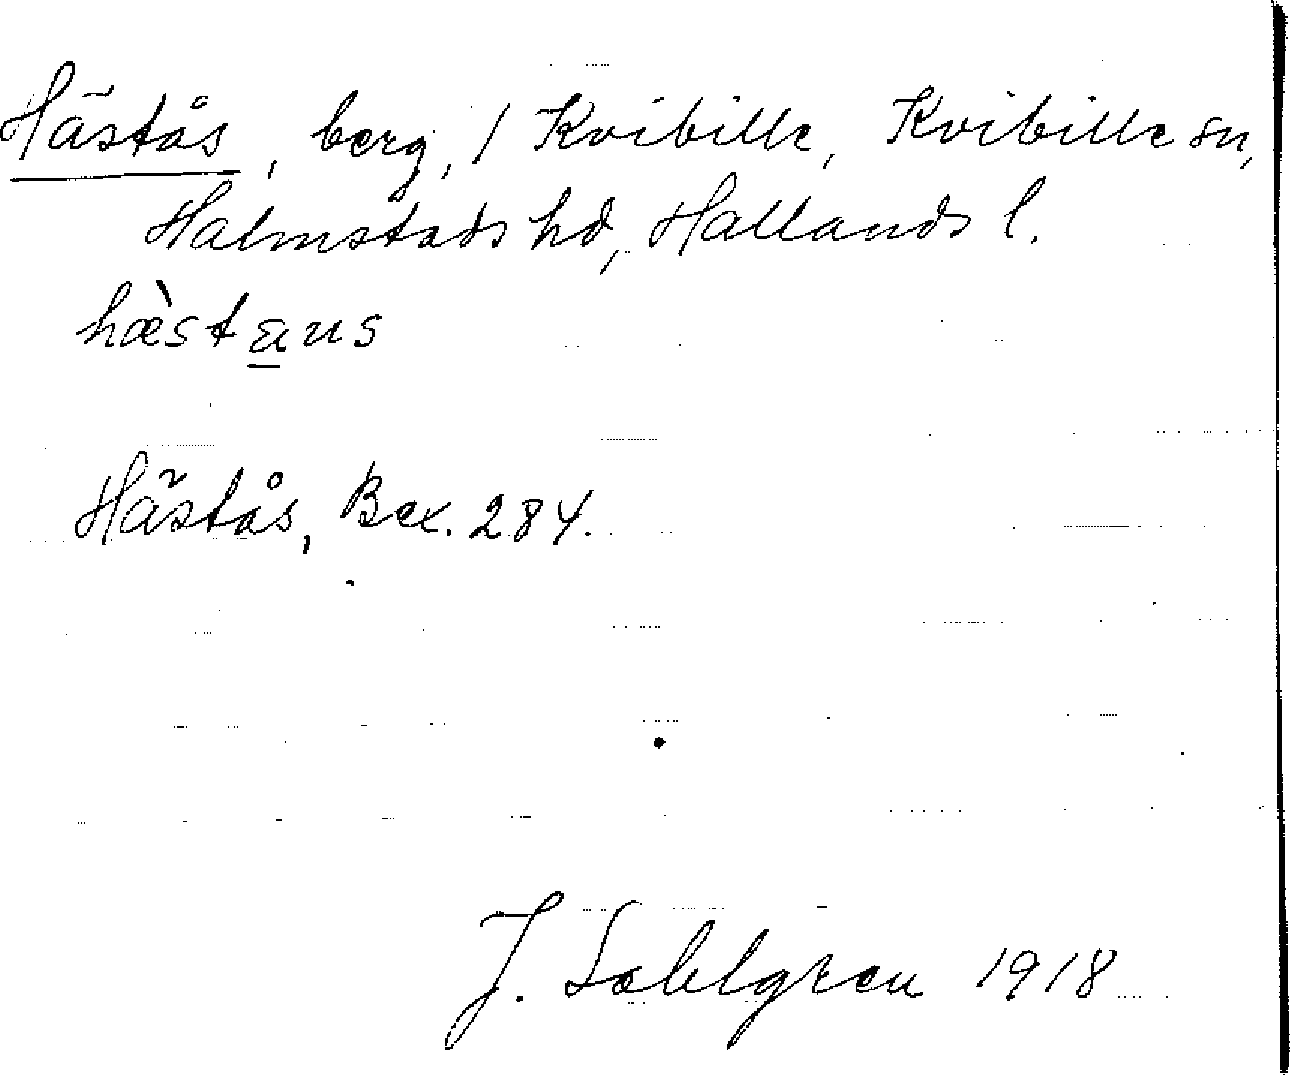 Hästås, berg, / Kvibille, Kvibille sn,
Halmstads hd, Hallands l.
hæ̀staus
Hästås, Bex. 284.
J. Sahlgren 1918